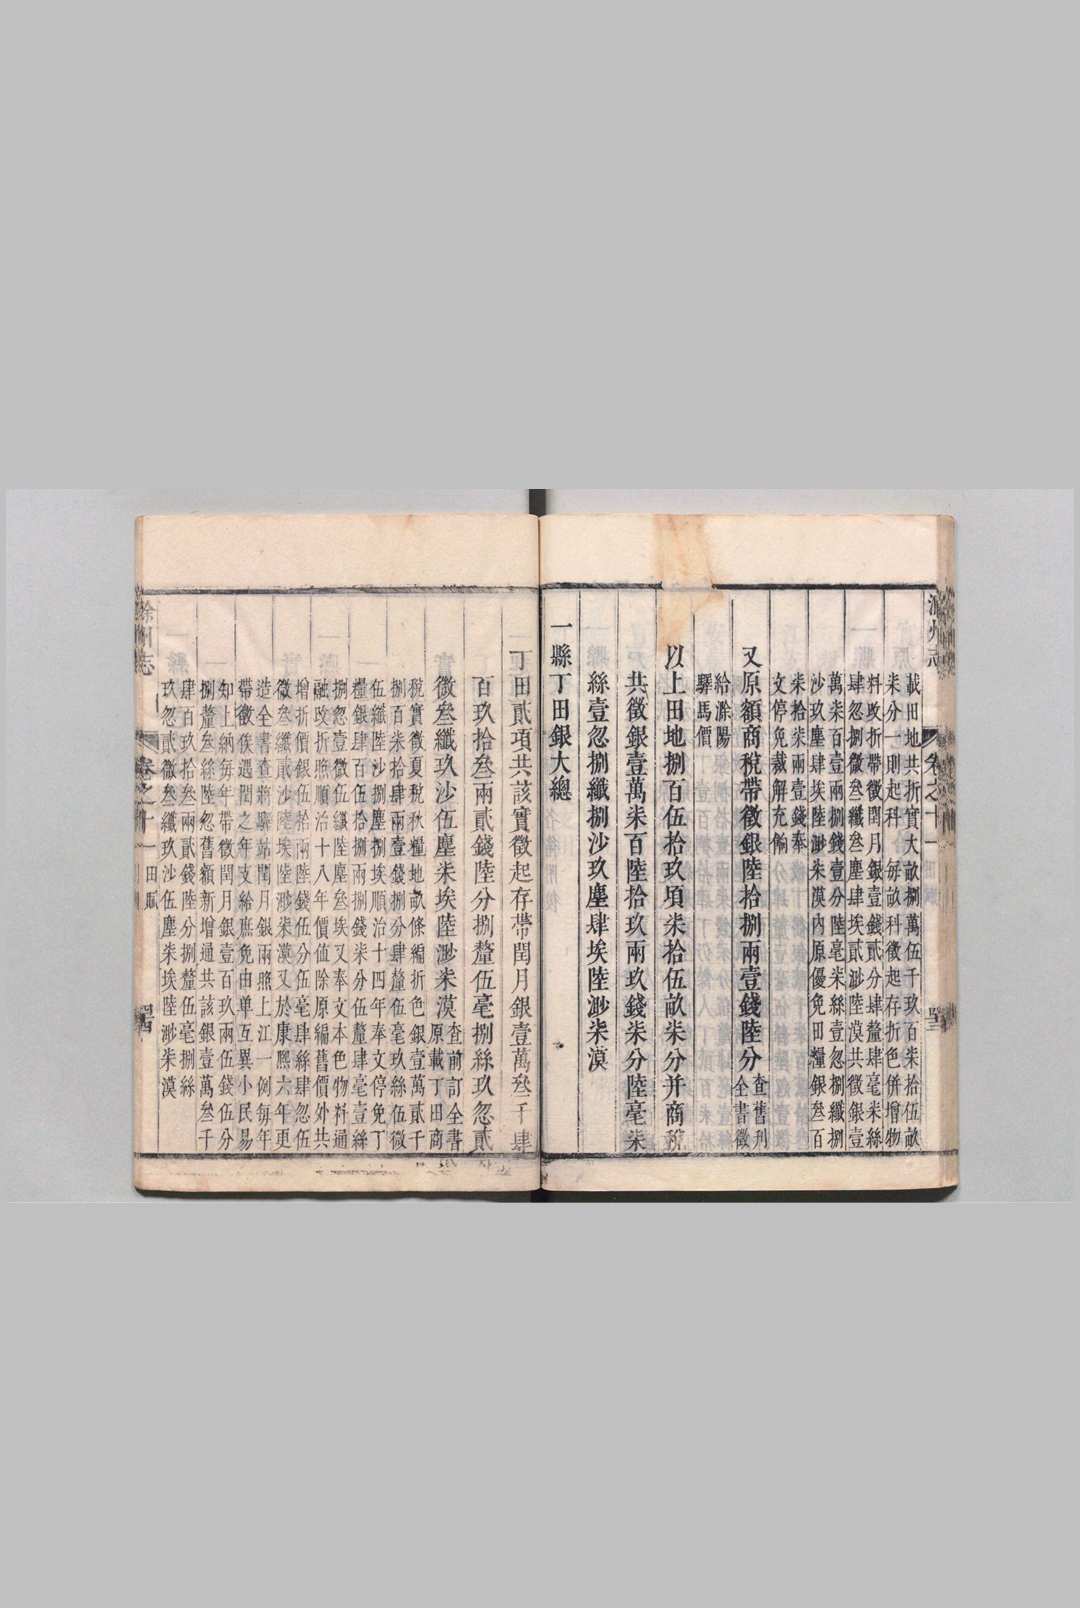 載田地共折實大畝捌萬伍千玖百柒拾伍畝
柒分一則起科 每畝科徵起存折色併增物
料改折帶徵閏月銀壹錢貳分肆釐肆毫柒絲
肆忽捌微叁纖叁塵肆埃貳渺陸漠共徵銀壹
萬柒百壹兩捌錢壹分陸毫柒絲壹忽捌纖捌
沙玖塵肆埃陸渺柒漠內原優免田糧銀叁百
柒拾柒兩壹錢奉
文停免裁解充餉
又原額商稅帶徵銀陸拾捌兩壹錢陸分
查舊刊
全書徵
給滁陽
驛馬價
以上田地捌百伍拾玖頃柒拾伍畝柒分并商稅
共徵銀壹萬柒百陸拾玖兩玖錢柒分陸毫柒
絲壹忽捌纖捌沙玖塵肆埃陸渺柒漠
一縣丁田銀大總
丁田貳項共該實徵起存帶閏月銀壹萬叁千肆
百玖拾叁兩貳錢陸分捌釐伍毫捌絲玖忽貳
微叁纖玖沙伍塵柒埃陸渺柒漠
查前訂全書
原載丁田商
稅實徵夏稅秋糧地畝條編折色銀壹萬貳千
捌百柒拾肆兩壹錢捌分肆釐伍毫玖絲伍微
伍纖陸沙捌塵捌埃順治十四年奉文停免丁
糧銀肆百伍拾捌兩柒錢柒分伍釐肆毫壹絲
捌忽壹微伍纖陸塵叁埃又奉文本色物料通
融改折照順治十八年價值除原編舊價外共
增折價銀伍拾兩陸錢伍分伍毫肆絲肆忽伍
微叁纖貳沙陸埃陸渺柒漠又於康熙六年更
造全書查將驛站閏月銀兩照上江一例每年
帶徵俟遇閏之年支給庶免由單互異小民易
知上納每年帶徵閏月銀壹百玖兩伍錢伍分
捌釐叁絲陸忽舊額新增通共該銀壹萬叁千
肆百玖拾叁兩貳錢陸分捌釐伍毫捌絲
玖忽貳微叁纖玖沙伍塵柒埃陸渺柒漠
卷之十一 田賦